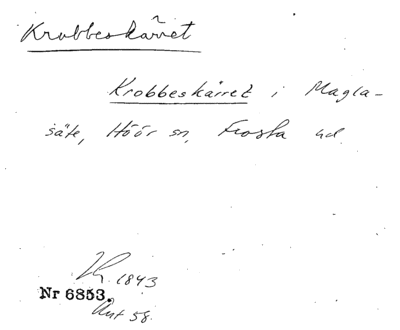 Krobbeskärret
Krobbeskärret i Magla-
säte, Höör sn, Frosta hd.
1843
Nr 6853.
Ant 58.